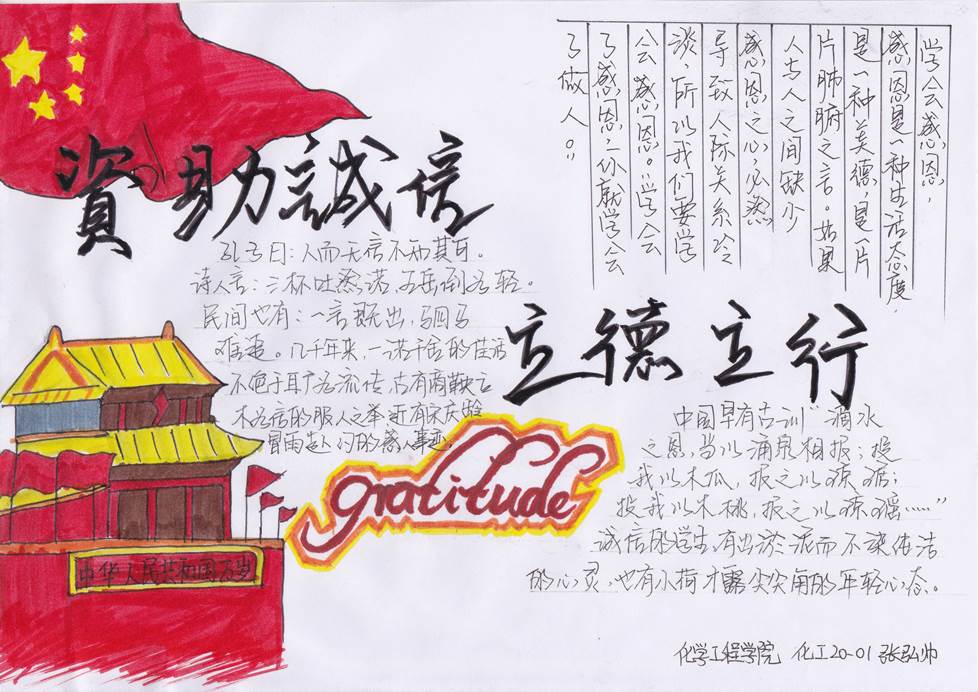 資助誠信
孔子曰：人而无信不知其可。
诗人言：三杯吐然诺，五岳倒为轻。
民间也有：一言既出，驷马
难追。几千年来，一诺千金的佳话
不绝于耳，广为流传，古有商鞅立
木为信的服人之举，近有宋庆龄
冒雨赴约的感人事迹。
学会感恩，
感恩是一种生活态度，
是一种美德，是一片
片肺腑之言。如果
人与人之间缺少
感恩之心，必然
导致人际关系冷
淡，所以我们要学
会感恩。“学会
了感恩，你就学会
了做人。”
立德立行
中国早有古训“滴水
之恩，当以涌泉相报；投
我以木瓜，报之以琼琚；
投我以木桃，报之以琼瑶……”
诚信的学生，有出淤泥而不染依洁
的心灵，也有小荷才露尖尖角的年轻心态。
gratitude
中华人民共和国万岁
化学工程学院 化工20-01 张弘帅